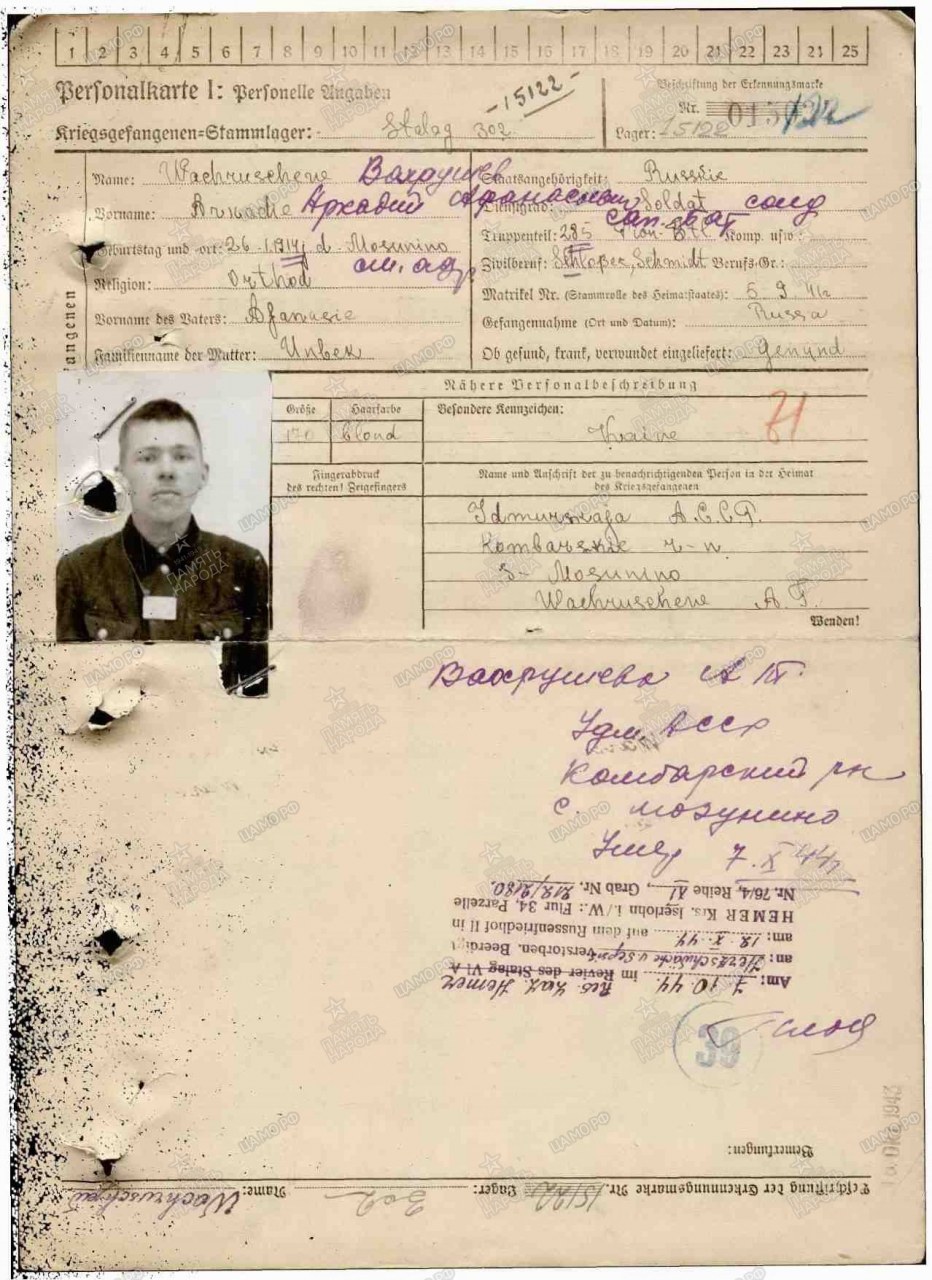 1 2 3 4 5 6 7 8 9 10 11 12 13 14 15 16 17 18 19 20 21 22 23 24 25
Personalkarte I: Personelle Angaben
-15122-
Kriegsgefangenen=Stammlager: Stalag 302
Beschriftung der Erkennungsmarke
Nr. 15122
Lager: 15122
Name: Wachruschene Вахрушев
Staatsangehörigkeit: Russie
Vorname: Arkadie Аркадий Афанасьевич
Dienstgrad: Soldat солд
сап. бат
Geburtstag und -ort: 26.1.1914 d. Mosunino
Truppenteil: 285 Komp. usw.:
см. адр
Zivilberuf: Schloßer, Schmidt Berufs-Gr.:
Religion: Orthod
Matrikel Nr. (Stammrolle des Heimatstaates): 5-9.42
Vorname des Vaters: Afanasie
Gefangennahme (Ort und Datum): Russa
Familienname der Mutter: Unbek
Ob gesund, krank, verwundet eingeliefert: Gesund
angenen
Nähere Personalbeschreibung
Größe Haarfarbe Besondere Kennzeichen:
170 blond Kaine
Fingerabdruck
des rechten! Zeigefingers
Name und Anschrift der zu benachrichtigenden Person in der Heimat
des Kriegsgefangenen
Idmurskaja A.C.C.P.
Kombarskie r-n.
S- Mosunino
Wachruschene A.T.
Wenden!
Вахрушева А Т.
Удм. АССР
Комбарский рн
с. мозунино
Умер 7.X 44г
Am: 7.10.44. im Revier des Stalag VI A Res Laz. Hemer
an: Herzschwäche v. Sepsis verstorben. Beerdigt
am: 12.X.44 auf dem Russenfriedhof II in
HEMER Krs. Iserlohn i./W.: Flur 34, Parzelle
Nr. 76/4, Reihe 11, Grab Nr. 212/2180.
39
10. Okt. 1943
Bemerkungen:
Beschriftung der Erkennungsmarke Nr. 15122 Lager: 302 Name: Wachruschew
ЦАМО.РФ
ПАМЯТЬ
НАРОДА